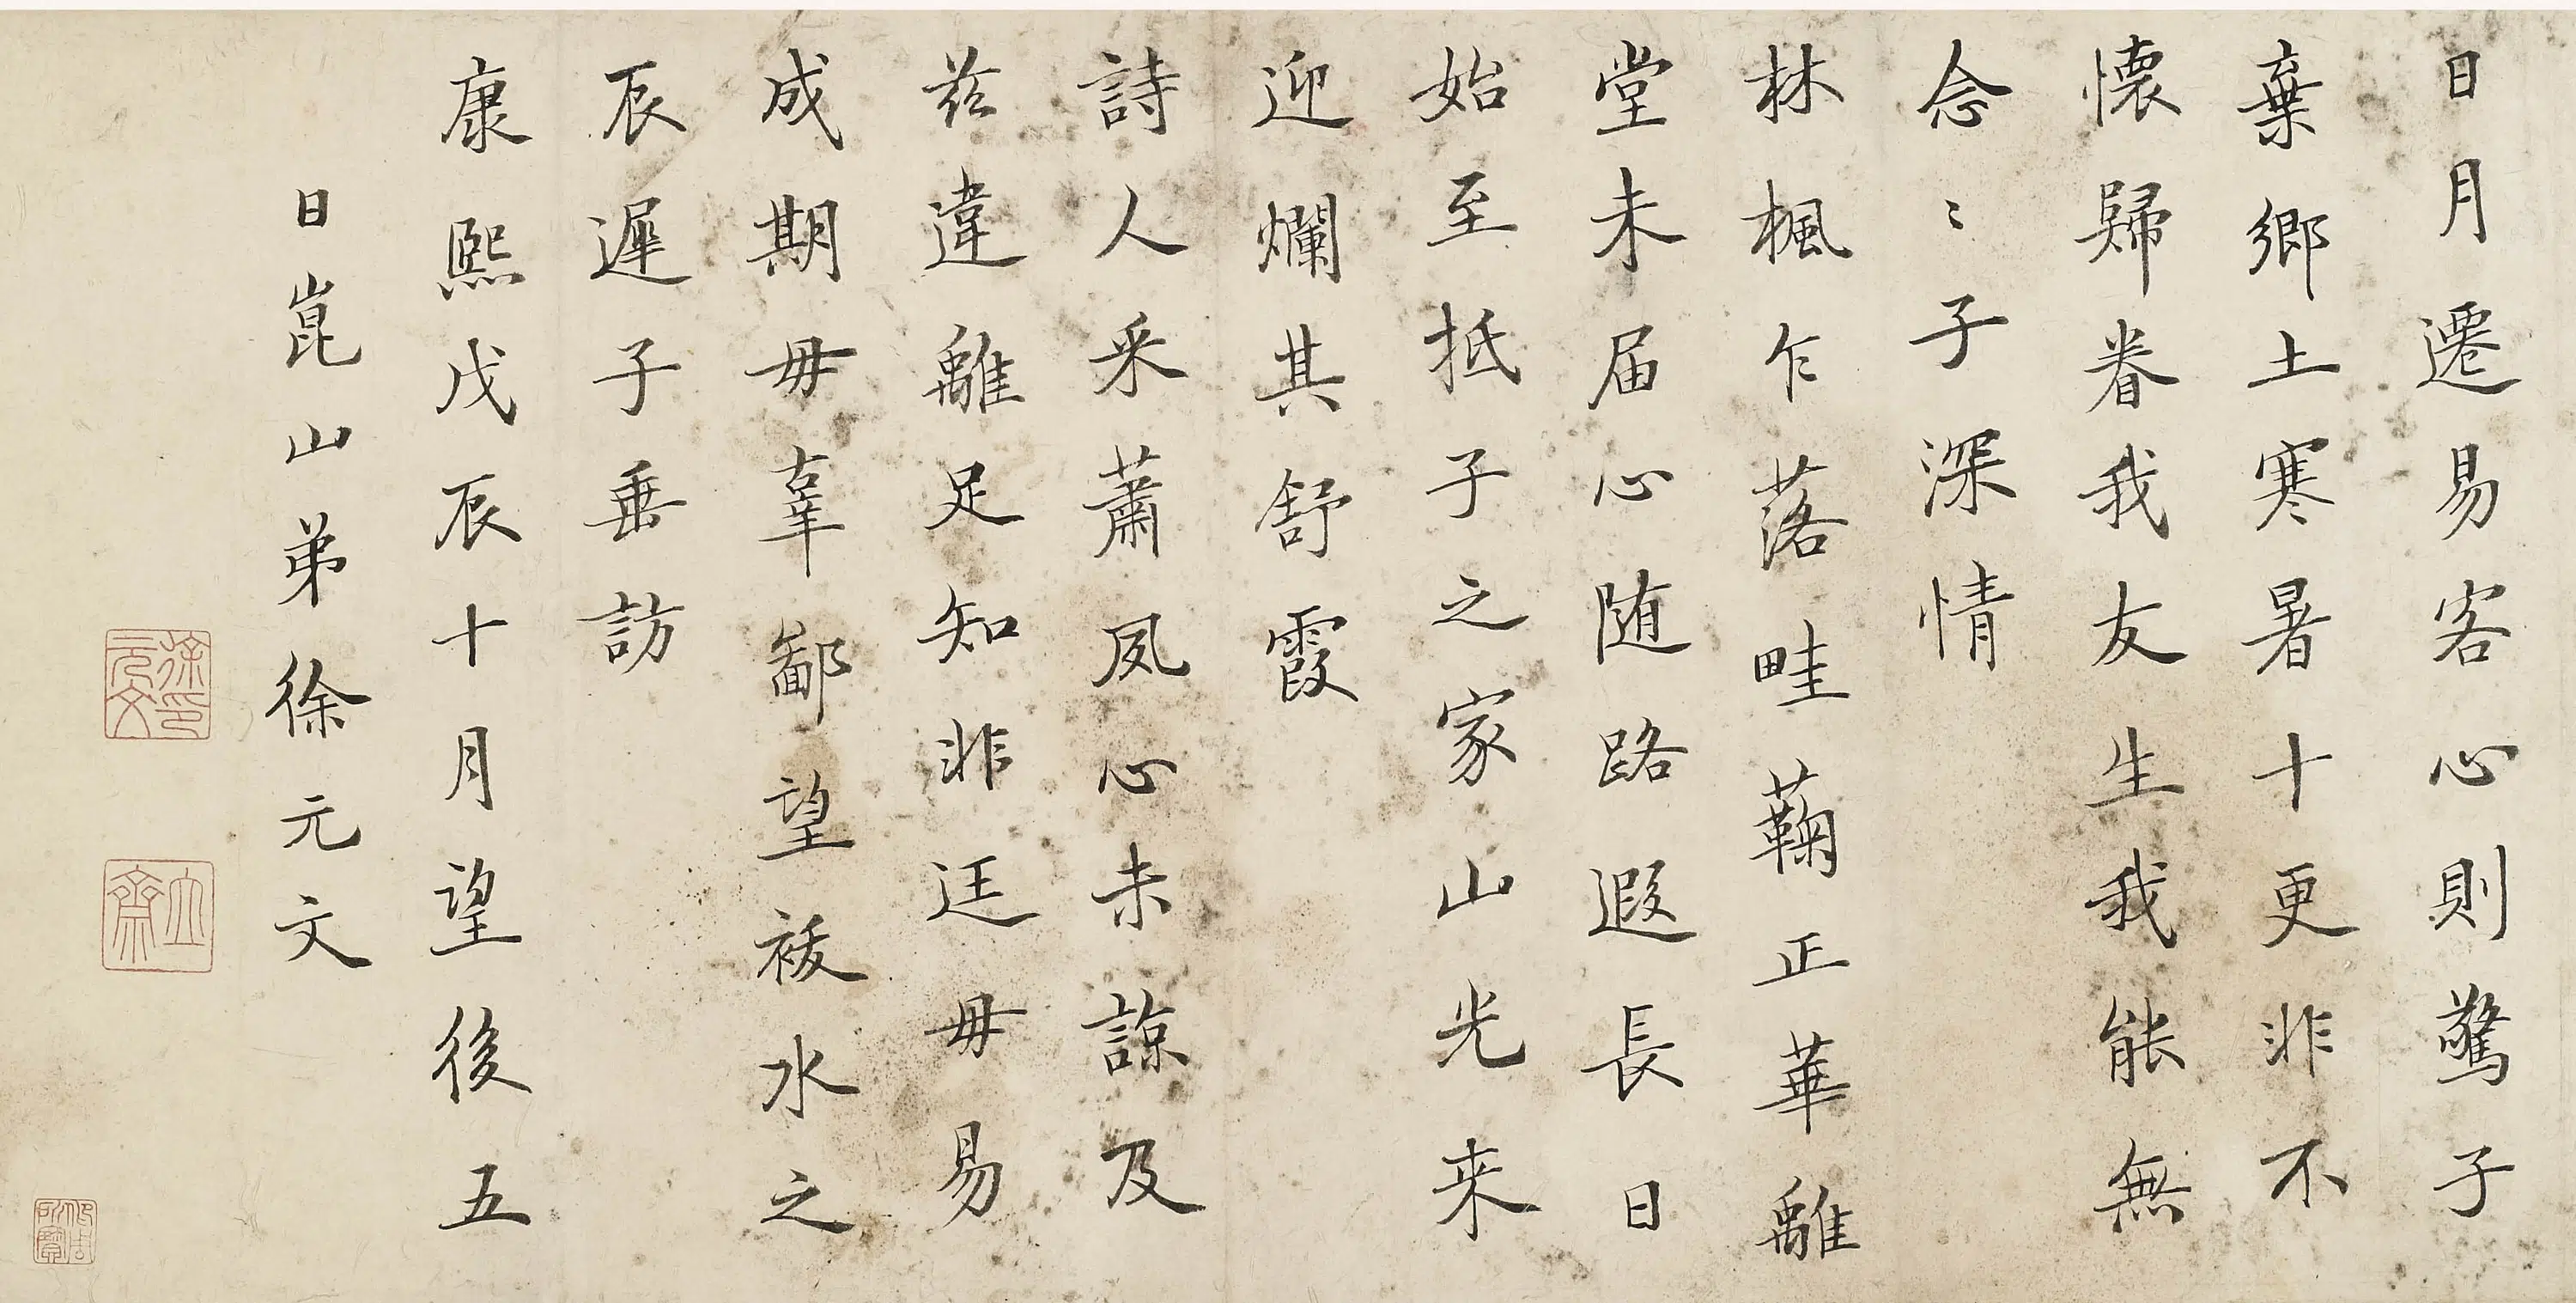 日月遷易客心則驚子
棄鄉土寒暑十更非不
懐歸眷我友生我能無
念〻子深情
林楓乍落畦蘜正華離
堂未届心随路遐長日
始至抵子之家山光来
迎爛其舒霞
詩人采蕭夙心未諒及
茲違離足知非迋毋易
成期毋辜鄙望祓水之
辰遲子垂訪
康熙戊辰十月望後五
日崑山弟徐元文
徐元文印
立齋